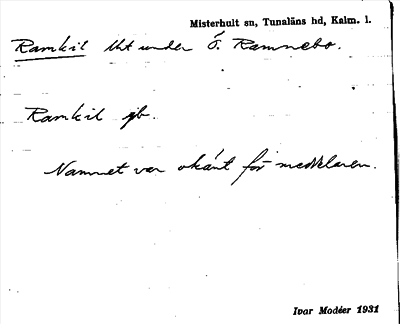 Misterhult sn, Tunaläns hd, Kalm. l.
Ramkil lht under Ö. Ramnebo.
Ramkil jb.
Namnet var okänt för meddelaren.
Ivar Modéer 1931